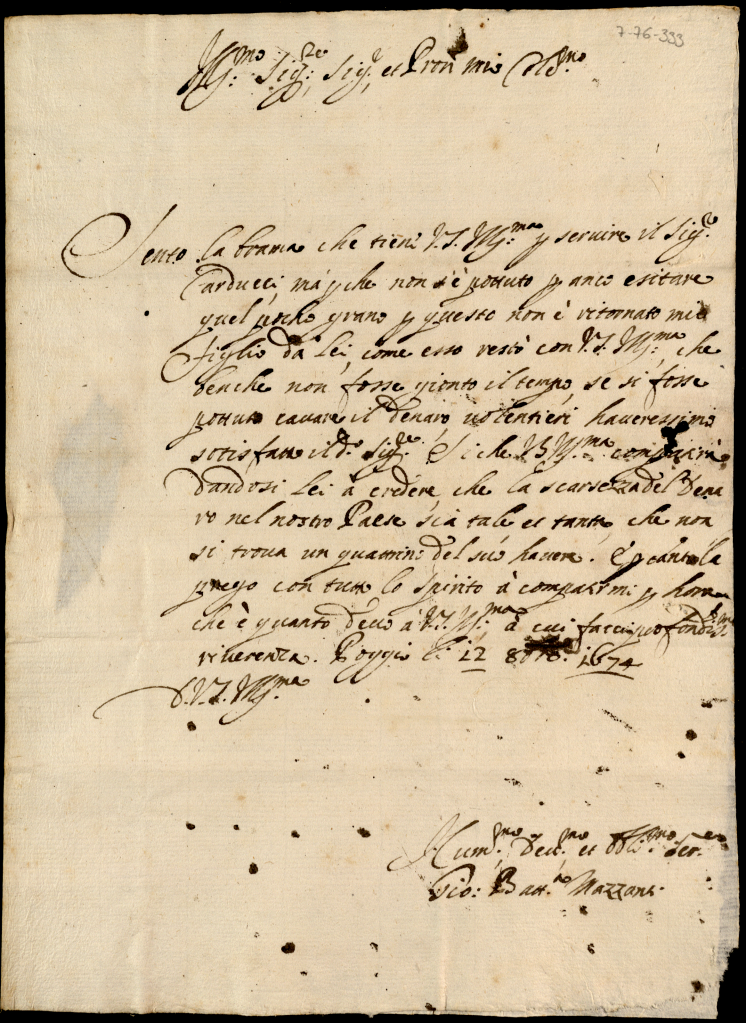 7-76-333
Ill:mo Sig:re Sig:r et Pron mio Col:mo
Sento la brama che tiene V.S. Ill:ma p servire il Sig:re
Carducci, ma p che non s'è potuto p anco esitare
quel pocho grano p questo non è ritornato mio
figlio da Lei, come esso restò con V.S. Ill:ma, che
benche non fosse gionto il tempo, se si fosse
potuto cavare il denaro volentieri haveressimo
sotisfatto il d:o Sig:re. Si che V.S. Ill:ma
dandosi Lei à credere, che la scarsezza del Dena
ro nel nostro Paese sia tale et tanta, che non
si trova un quattrino del suo havere. E p tanto la
prego con tutto lo spirito à compatirmi p hora
che è quanto devo à V.S. Ill:ma à cui facci profondis:ma
riverenza. Poggio li 12 8bre. 1674
D.V.S. Ill:ma
Hum:mo Dev:mo et Obli:mo Ser:re
Gio: Batt:a Mazzanti